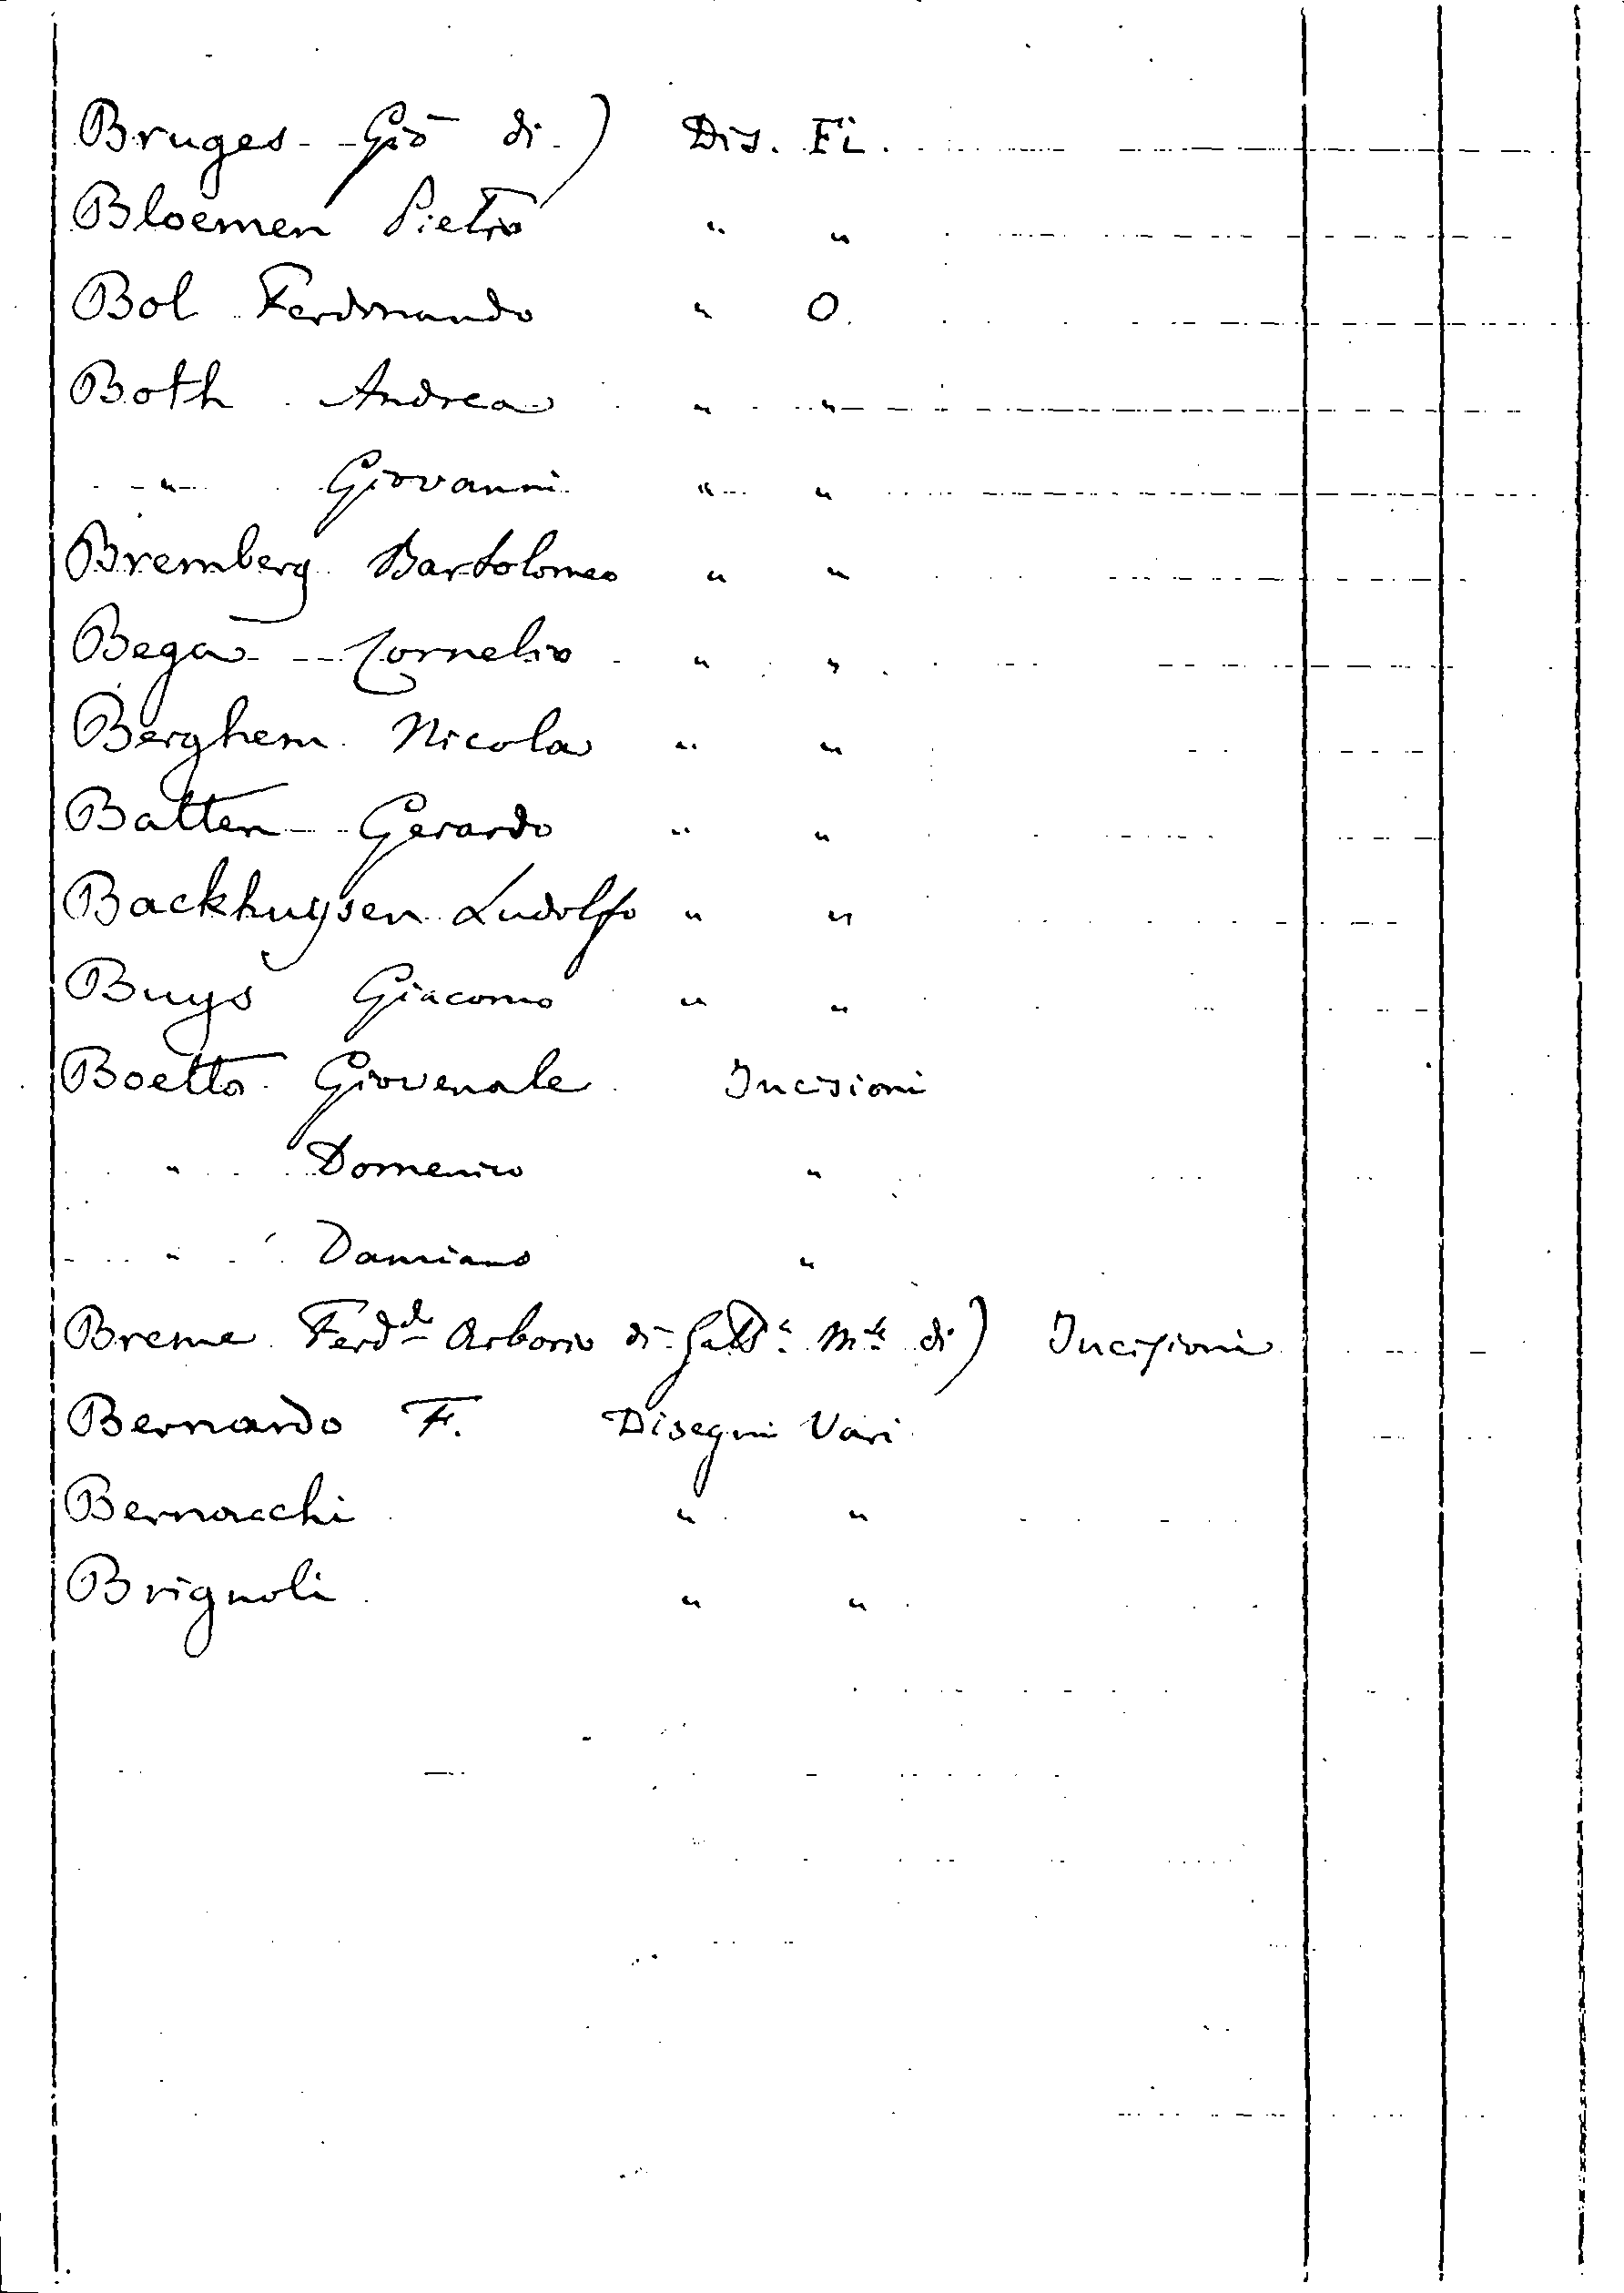 Bruges Gio di) Dis. Fi.
Bloemen Pietro " "
Bol Ferdinando " O.
Both Andrea " "
" Giovanni " "
Bremberg Bartolomeo " "
Bega Cornelio " "
Berghem Nicola " "
Batten Gerardo " "
Backhuysen Ludolfo " "
Buys Giacomo " "
Boetto Giovenale Incisioni
" Domenico "
" Damiano "
Breme Ferd.do Arborio di di) Incisioni
Bernardo F. Disegni Vari
Bernacchi " "
Brignoli " "